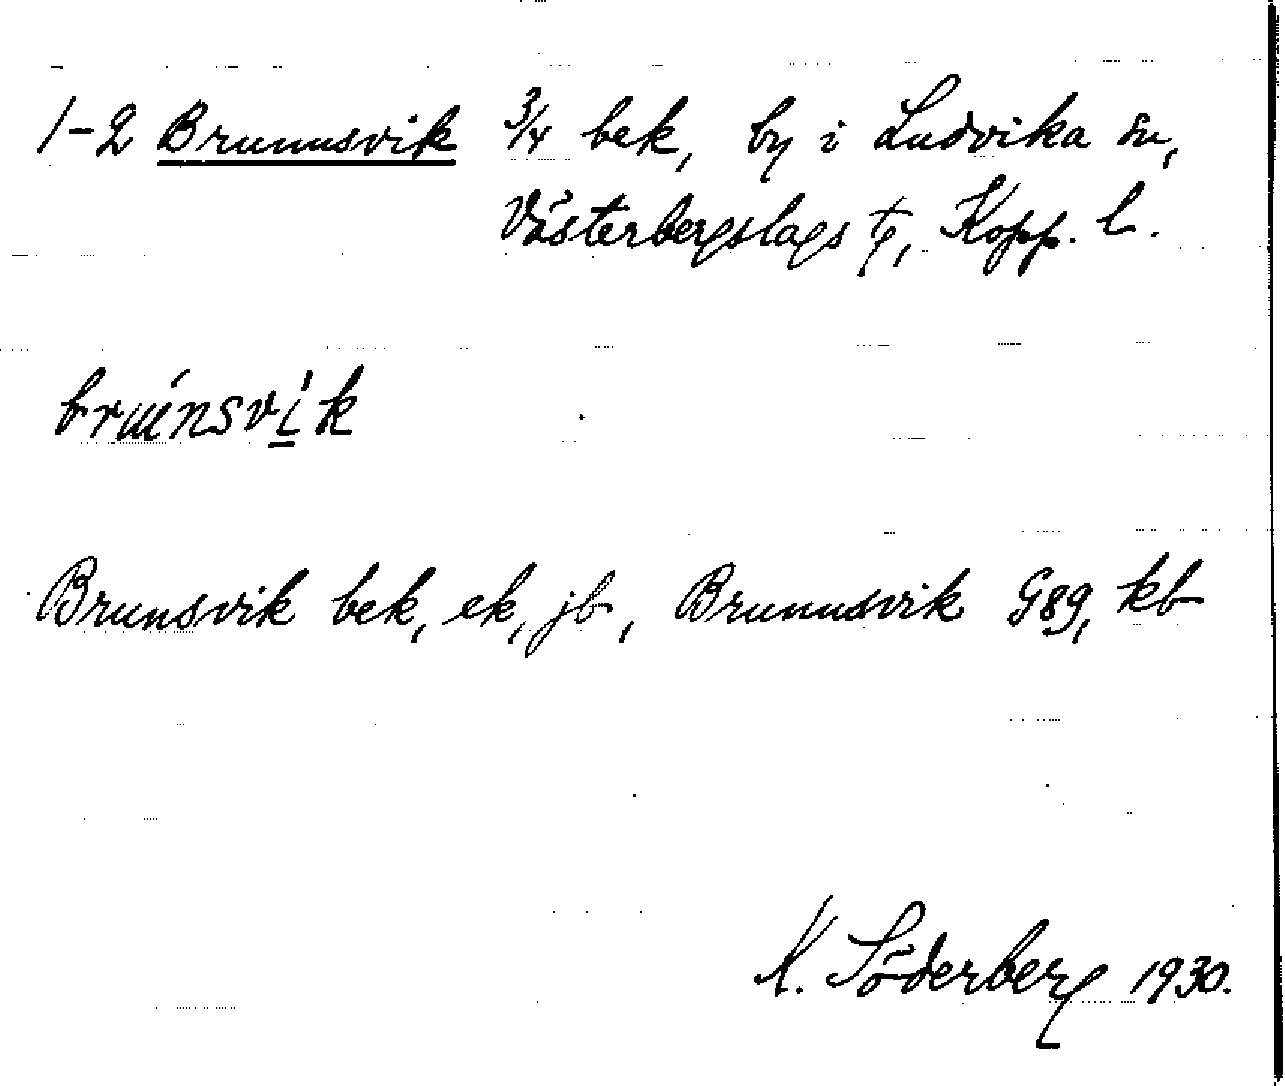 1-2 Brunnsvik 3/4 bek, by i Ludvika sn,
Västerbergslags tg, Kopp. l.
Brunsvik bek, ek, jb, Brunnsvik G89, kb
K. Söderberg 1930.